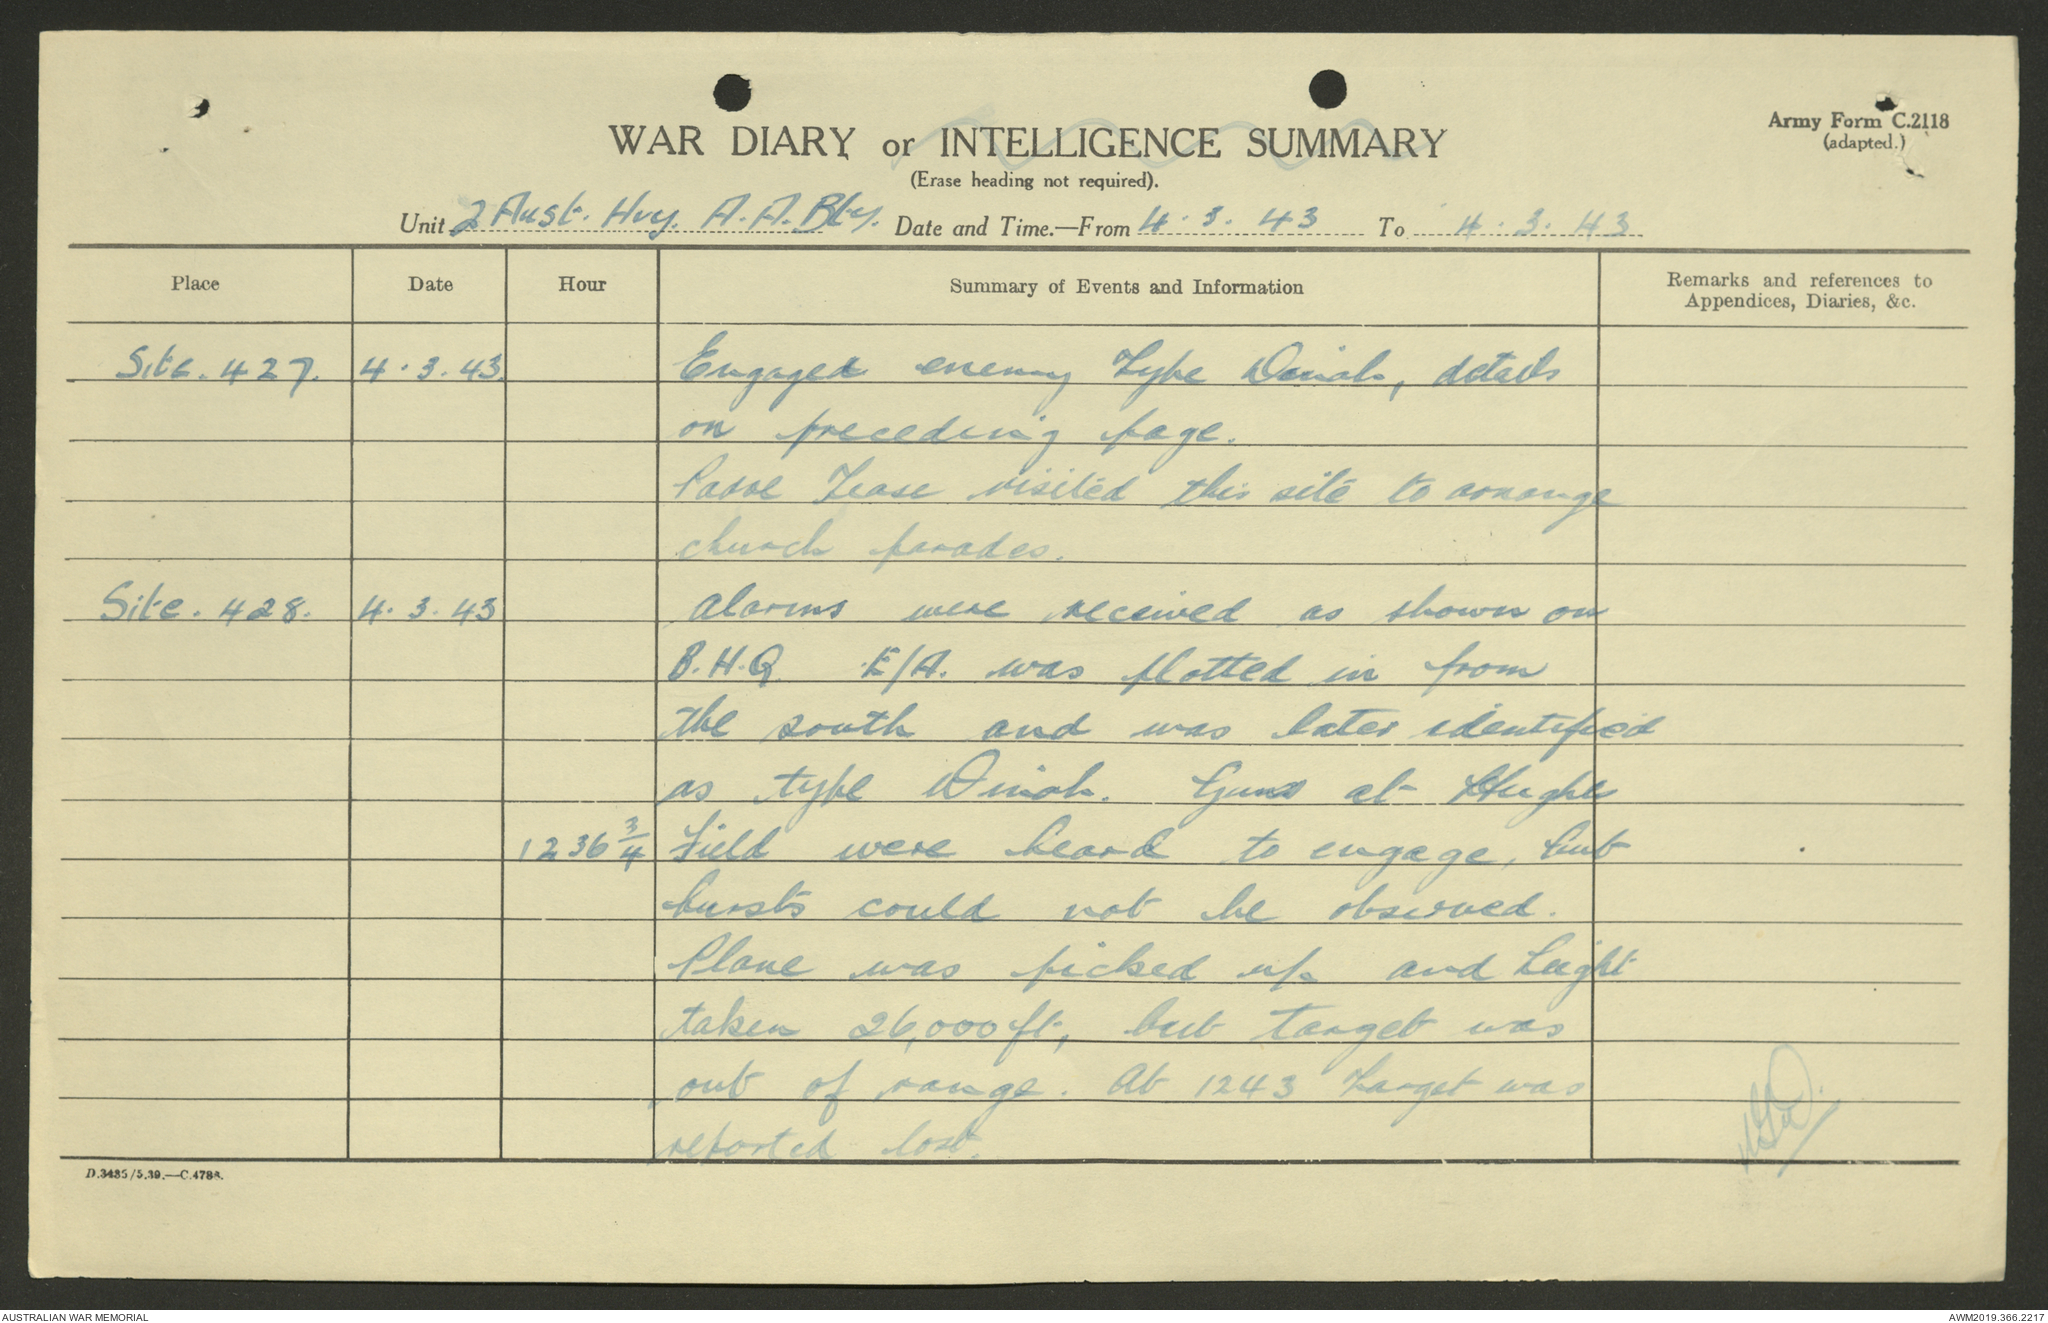 Army Form C.2118
(adapted.)
WAR DIARY or INTELLIGENCE SUMMARY
(Erase heading not required).
Unit 2 Aust. Hvy. A.A. Bty. Date and Time.—From 4.3.43 To 4.3.43
Place Date Hour Summary of Events and Information Remarks and references to
Appendices, Diaries, &c.
Site. 427. 4.3.43. Engaged enemy Type Dinah, details
on preceding page.
Padre Tease visited this site to arrange
church parades.
Site. 428. 4.3.43 Alarms were received as shown on
B.H.Q. E/A. was plotted in from
the south and was later identified
as type Dinah. Guns at Hughes
1236 3/4 Field were heard to engage, but
bursts could not be observed.
Plane was picked up and height
taken 26,000 ft, but target was
out of range. At 1243 target was
reported lost.
D.3485/5.39.—C.4788.
AUSTRALIAN WAR MEMORIAL AWM2019.366.2217